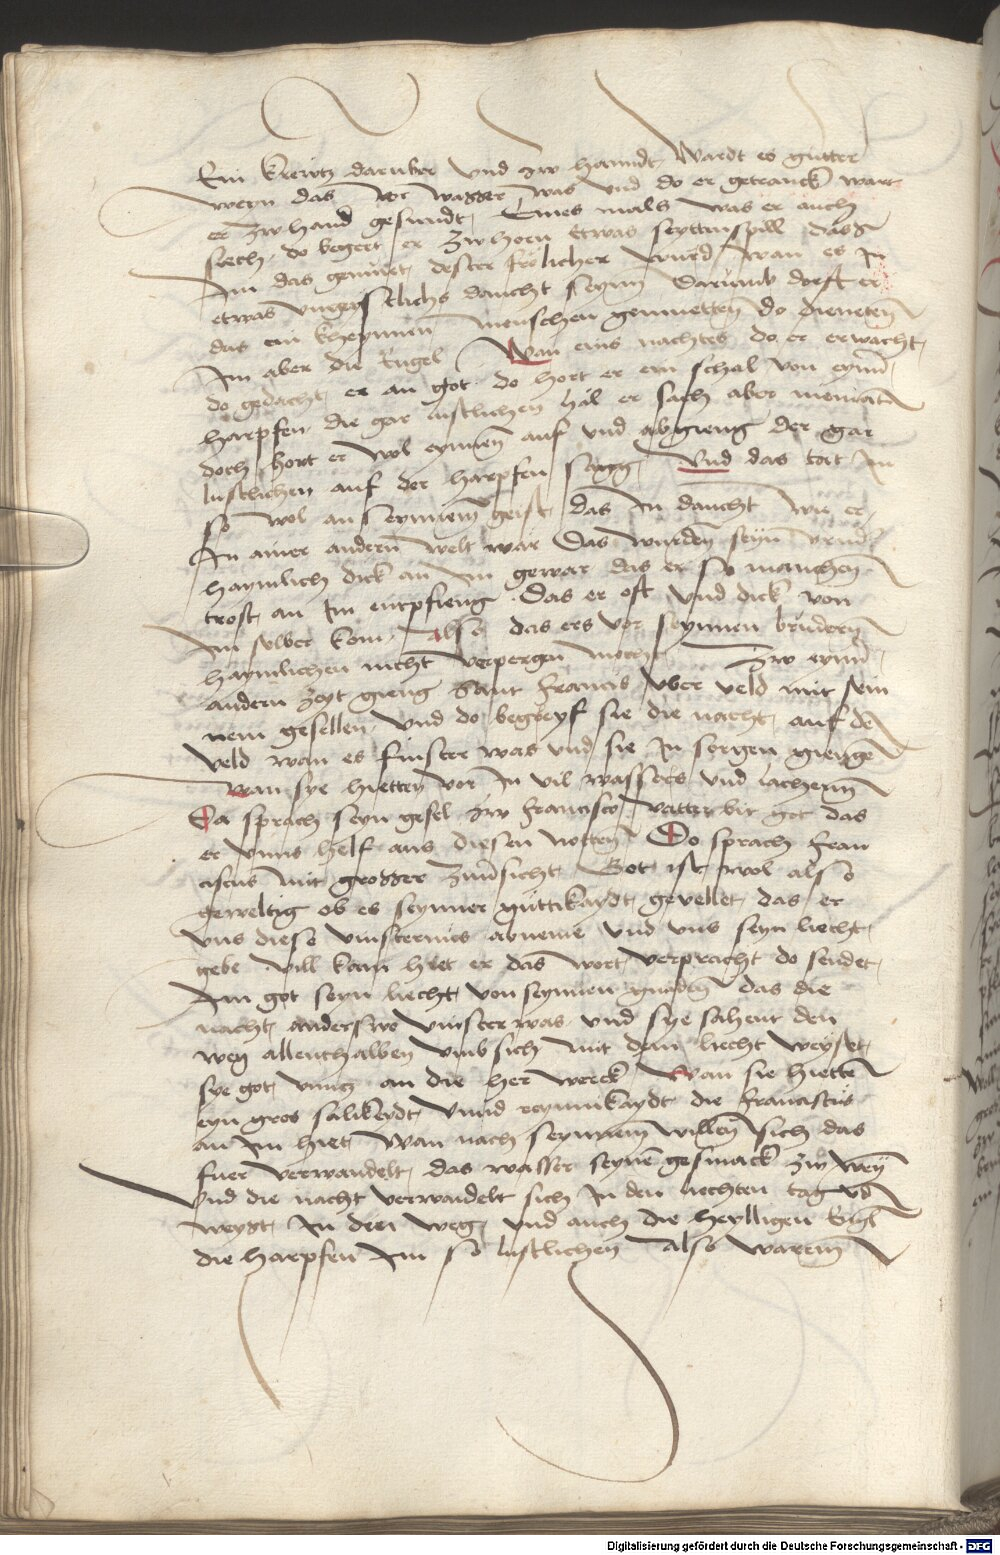 Ein kreutz daruber Vnd zw hanndt Wardt es gutter
weyn das vor wasser was vnd do er getranck wart
er zw hand gesundt Eines mals was er auch
siech do begert er zw horn etwas seyttinspill das
Im das gemuet dester frolicher wurd wan es In
etwas vngeystlichs daucht seynn Darumb dorft er
das ein kheynnen menschen gemuetten do dieneten
Im aber die Engel Wan eins nachtes do er erwacht
do gedacht er an got do hort er ein schal von eynner
harpfen die gar lustlichen hal er sach aber niemant
doch hort er wol eynnen auf vnd abgieng der gar
lustlichen auf der harpfen slug Vnd das tat Im
so wol an seynnem geist das In daucht wie er
In ainer andern welt war Das wurden seyn vrund
haymlich dick an Im gewar das er so manchen
trost an Im enpfieng Das er oft vnd dick von
Im selber kom Also das ers vor seynnen brudern
haymlichen nicht verpergen mocht Zw eynner
andern zeyt gieng Sant Francis vber veld mit sein
nem gesellen Vnd do begreyf sie die nacht auf dem
veld wan es finster was vnd sie In sorgen giengen
Wan sye hietten vor In vil wassers vnd lachenn
Da sprach seyn gesel zw Francisco vatter bit got das
er vnns helf aus diesen notten Do sprach Fran
ciscus mit grosser zuuersicht Got ist wol also
geweltig ob es seynner guttikaydt gevellet das er
vns diese vinsternis abneme vnd vns seyn liecht
gebe vill kam hiet er das wort verpracht do sendet
Im got seyn liecht von seynnen gnaden das die
nacht anderswo vinster was vnd sye sahent den
weg allenthalben vmb sich mit dem liecht weyset
sye got vnntz an die herwerck Wan sie hietten
eyn gros salikeydt vnnd reynnikaydt die Franciscus
an Im hiet Wan nach seynnem willen sich das
fuer verwandelt das wasser seynen gesmack zw weyn
vnd die nacht verwandelt sich In den liechten tag vnd
weyst In den weg vnd auch die heylligen Engel
die harpfen Im so lustlichen Also warenn
Digitalisierung gefördert durch die Deutsche Forschungsgemeinschaft - DFG